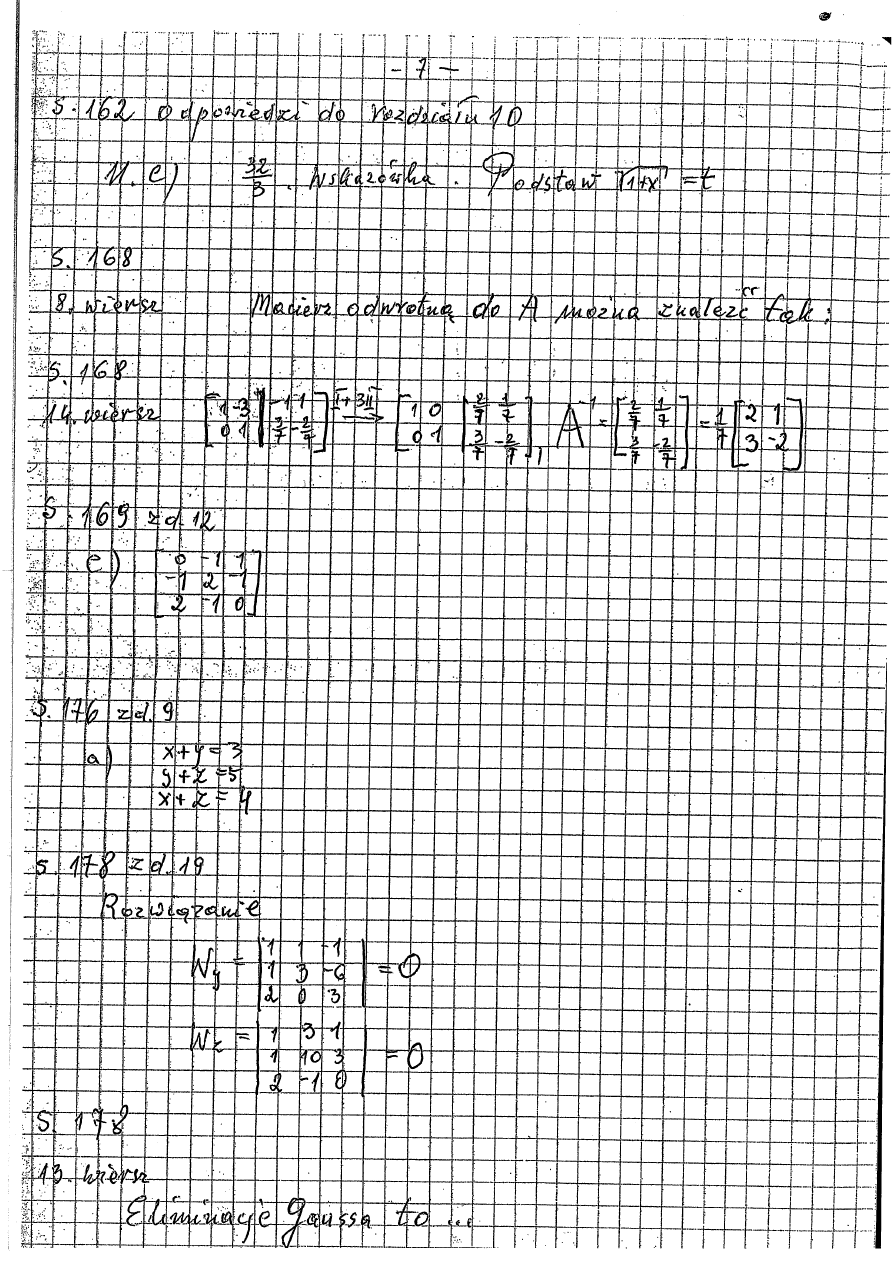 - 7 -
S. 162 Odpowiedzi do rozdziału 10
11. e) 32/3. Wskazówka. Podstaw √(1+x) = t
S. 168
8. wiersz Macierz odwrotną do A można znaleźć tak:
S. 168
14. wiersz [1 -3 | -1 1; 0 1 | 3/7 -2/7] I+3II → [1 0 | 2/7 1/7; 0 1 | 3/7 -2/7], A⁻¹ = [2/7 1/7; 3/7 -2/7] = 1/7 [2 1; 3 -2]
S. 169 zd. 12
e) [0 -1 1
-1 2 -1
2 -1 0]
S. 176 zd. 9
a) x+y=3
y+z=5
x+z=4
S. 178 zd. 19
Rozwiązanie
Wy = |1 1 -1
1 3 -6
2 0 3| = 0
Wz = |1 3 1
1 10 3
2 -1 0| = 0
S. 178
13. wiersz
Eliminacje Gaussa to ...